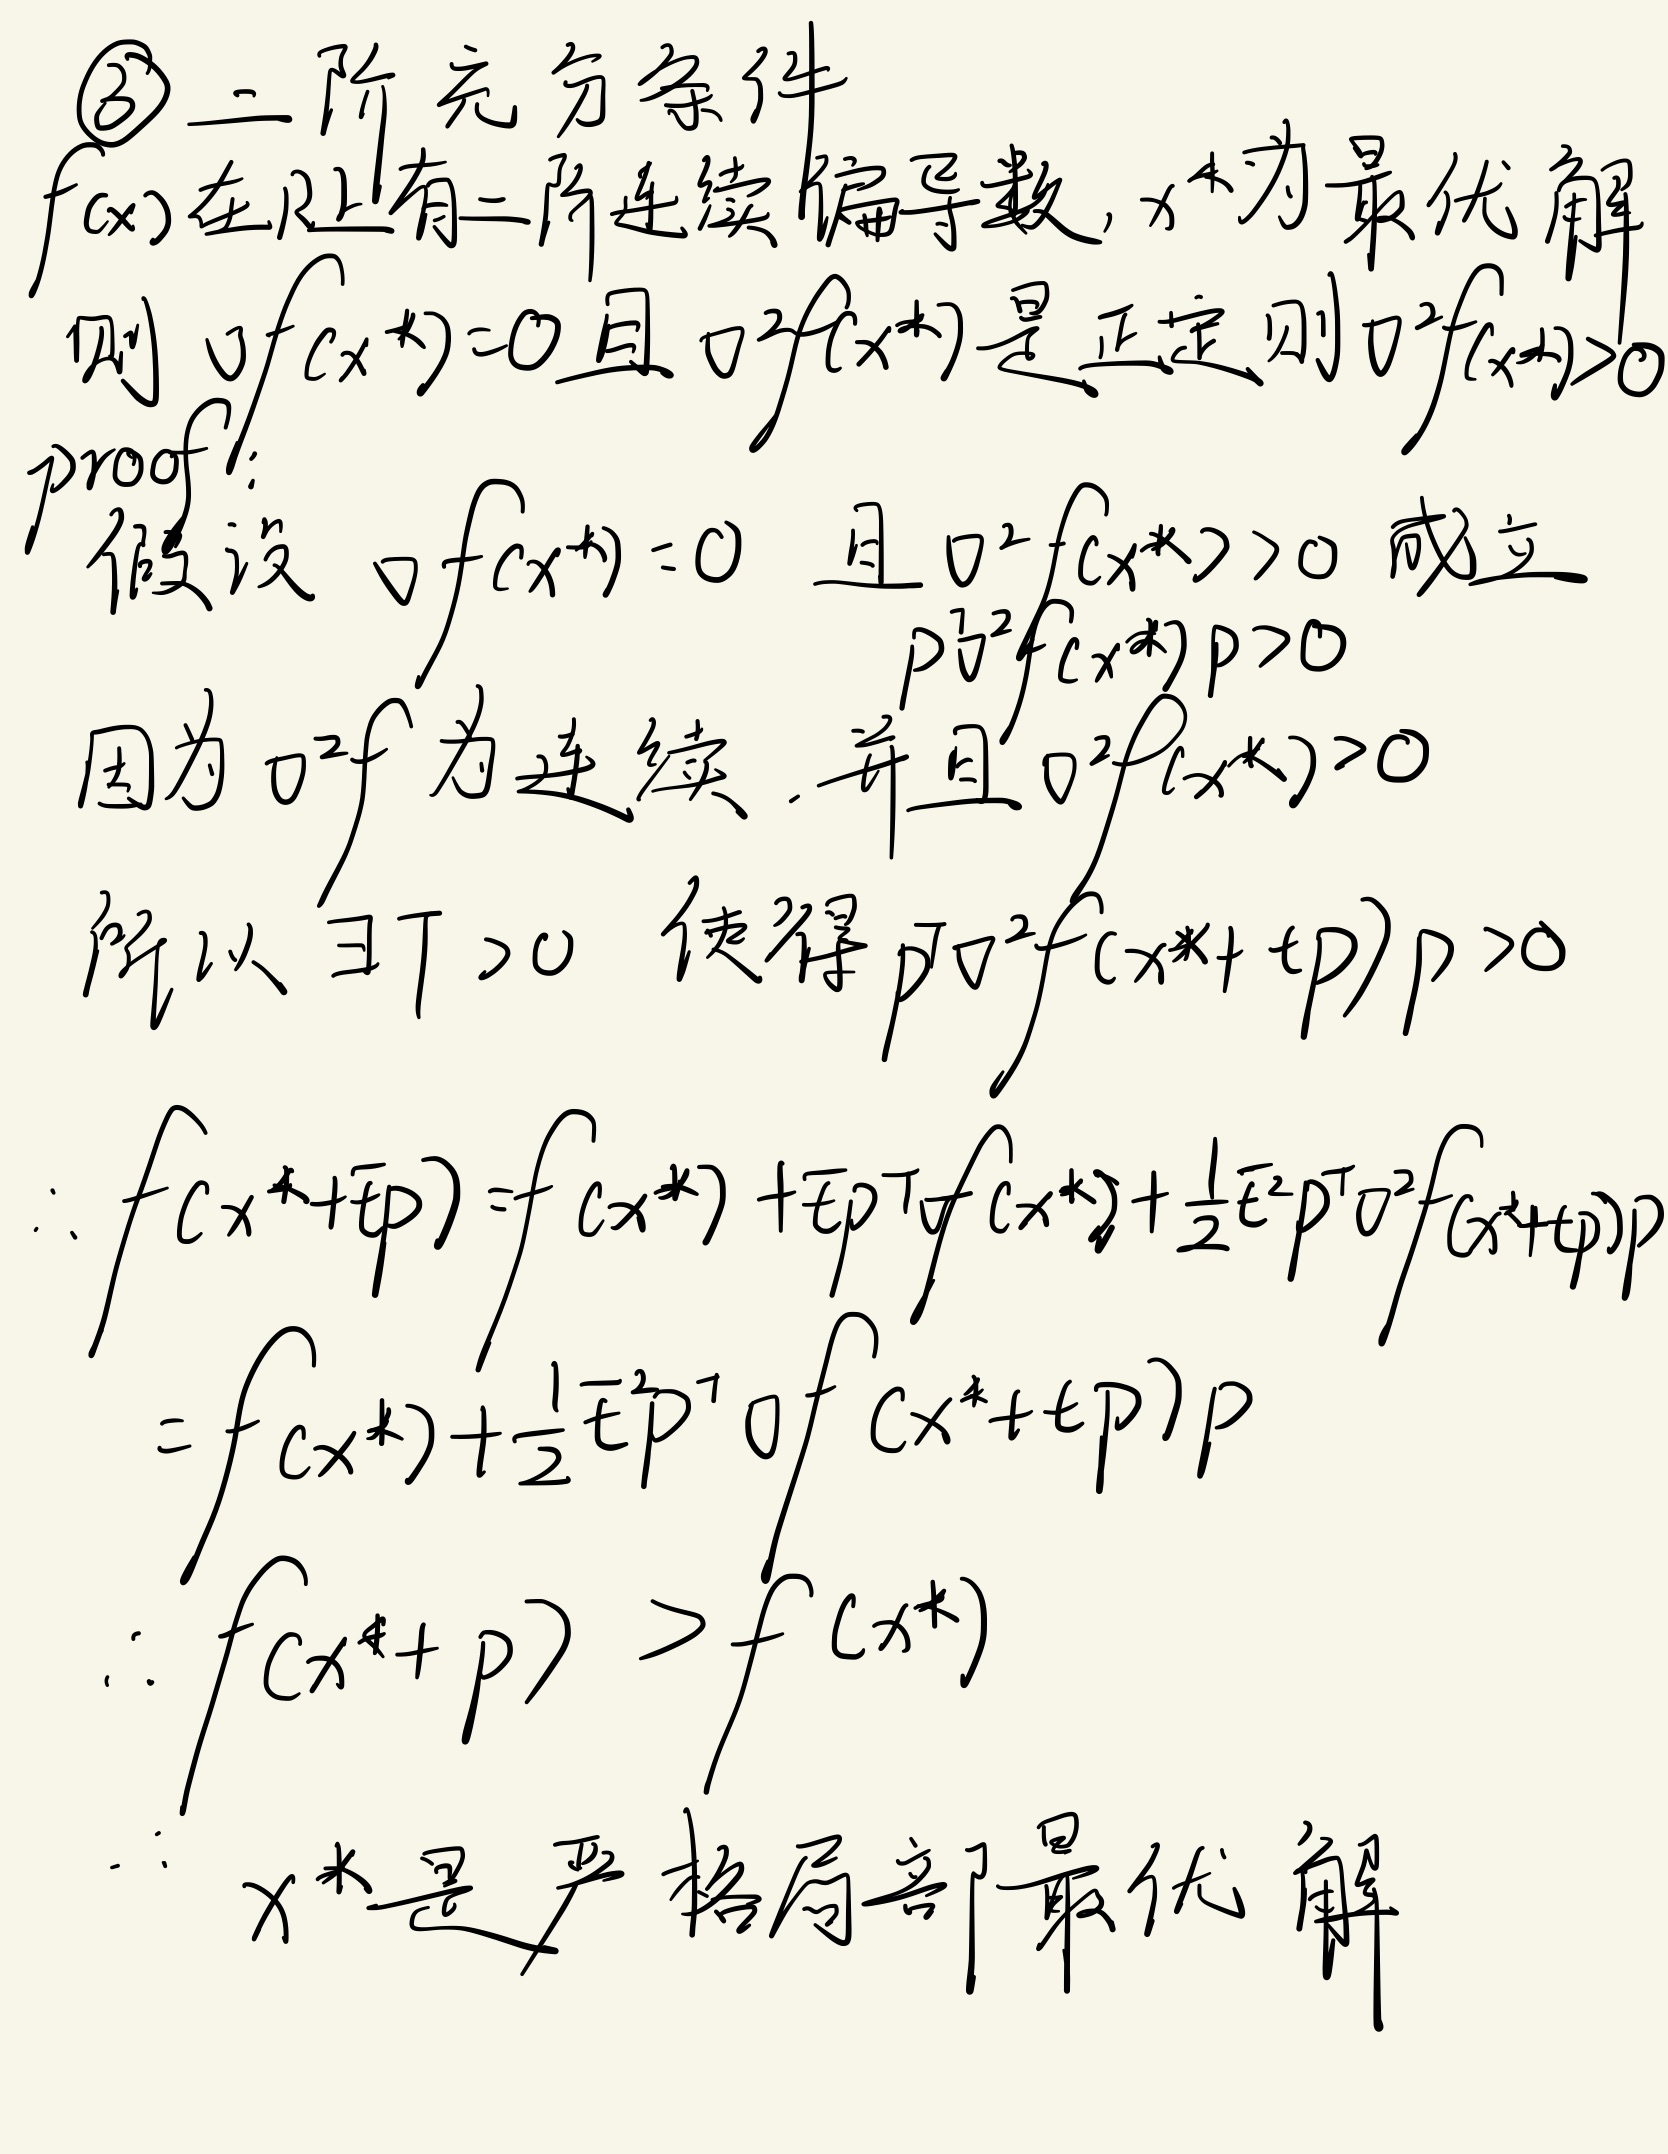 ③二阶充分条件
f(x)在R上有二阶连续偏导数,x*为最优解
则 ∇f(x*)=0且∇²f(x*)是正定则∇²f(x*)>0
proof:
假设 ∇f(x*)=0 且∇²f(x*)>0 成立
pᵀ∇²f(x*)p>0
因为∇²f为连续.并且∇²f(x*)>0
所以∃T>0 使得pᵀ∇²f(x*+tp)p>0
∴f(x*+t̄p)=f(x*)+t̄pᵀ∇f(x*)+½t̄²pᵀ∇²f(x*+tp)p
=f(x*)+½t̄²pᵀ∇f(x*+tp)p
∴f(x*+p) >f(x*)
∴ x*是严格局部最优解